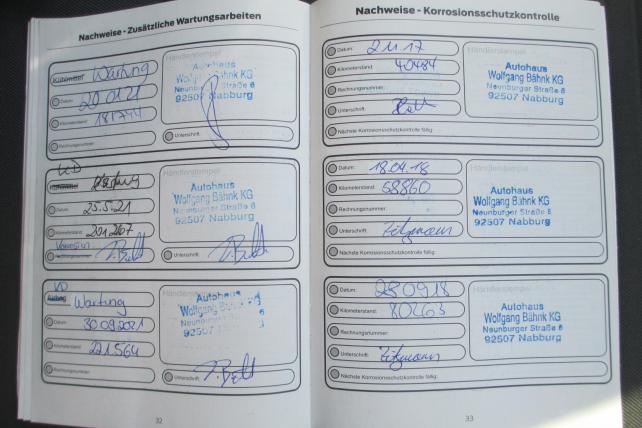 Nachweise - Zusätzliche Wartungsarbeiten
Wartung
Händlerstempel
Autohaus
Wolfgang Bähnk KG
Neunburger Straße 6
92507 Nabburg
Datum:
20.01.21
Kilometerstand:
181744
Rechnungsnummer:
Unterschrift:
Händlerstempel
Autohaus
Wolfgang Bähnk KG
Neunburger Straße 6
92507 Nabburg
Datum:
25.5.21
Kilometerstand:
201267
Rechnungsnummer:
Unterschrift:
Wartung
Händlerstempel
Autohaus
Wolfgang Bähnk KG
Neunburger Straße 6
92507
Datum:
30.09.2021
Kilometerstand:
221.564
Rechnungsnummer:
Unterschrift:
32
Nachweise - Korrosionsschutzkontrolle
Datum:
2.11.17
Händlerstempel
Kilometerstand:
40484
Autohaus
Wolfgang Bähnk KG
Neunburger Straße 6
92507 Nabburg
Rechnungsnummer:
Unterschrift:
Nächste Korrosionsschutzkontrolle fällig:
Datum:
18.04.18
Händlerstempel
Kilometerstand:
58860
Autohaus
Wolfgang Bähnk KG
Neunburger Straße 6
92507 Nabburg
Rechnungsnummer:
Unterschrift:
Nächste Korrosionsschutzkontrolle fällig:
Datum:
28.09.18
Händlerstempel
Kilometerstand:
80263
Autohaus
Wolfgang Bähnk KG
Neunburger Straße 6
92507 Nabburg
Rechnungsnummer:
Unterschrift:
Nächste Korrosionsschutzkontrolle fällig:
33